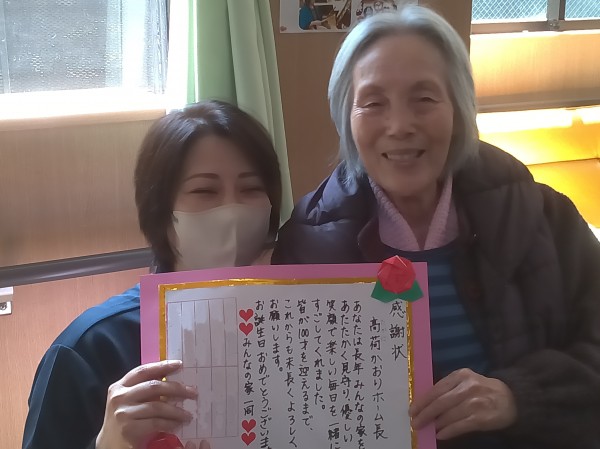 感謝状
高荷かおりホーム長
あなたは長年みんなの家を
あたたかく見守り、優しい
笑顔で楽しい毎日を一緒に
すごしてくれました。
皆が100才を迎えるまで、
これからも末長くよろしく
お願いします。
お誕生日おめでとうございま
みんなの家一同